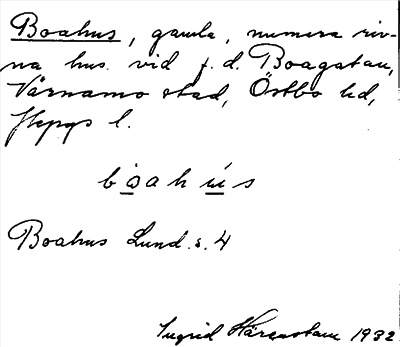 Boahus, gamla, numera riv-
na hus. vid f. d. Boagatan,
Värnamo stad, Östbo hd,
Jkpgs l.
bo̲ahú̲s
Boahus Lund. s. 4
Ingrid Härenstam 1932